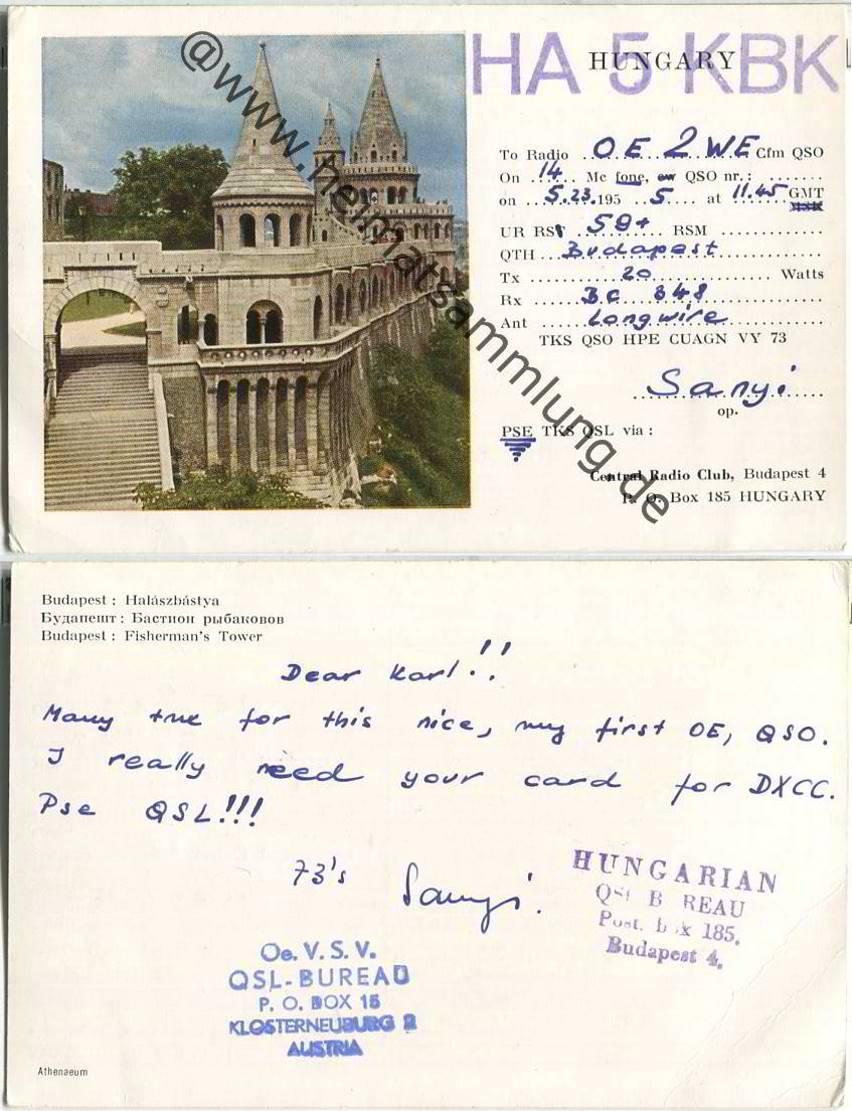 HA 5 KBK
HUNGARY
To Radio OE2WE Cfm QSO
On 14 Mc fone, cw QSO nr.:
on 5.23. 195 5 at 11.45 GMT
UR RS 59+ RSM
QTH Budapest
Tx 20 Watts
Rx BC 348
Ant Longwire
TKS QSO HPE CUAGN VY 73
Sanyi
op.
PSE TKS QSL via:
Central Radio Club, Budapest 4
P. O. Box 185 HUNGARY
@www.heimatsammlung.de
Budapest: Halászbástya
Будапешт: Бастион рыбаковов
Budapest: Fisherman's Tower
Dear Karl!!
Many tnx for this nice, my first OE, QSO.
I really need your card for DXCC.
Pse QSL!!!
73's Sanyi.
HUNGARIAN
QSL B REAU
Post. box 185.
Budapest 4.
Oe. V. S. V.
QSL-BUREAU
P. O. BOX 15
KLOSTERNEUBURG 2
AUSTRIA
Athenaeum